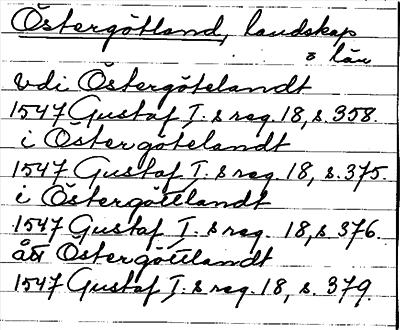 Östergötland, landskap
o län
vdi Östergötelandt
1547 Gustaf I:s reg. 18, s. 358.
i Östergötelandt
1547 Gustaf I:s reg. 18, s. 375.
i Östergöttlandt
1547 Gustaf I:s reg. 18, s 376.
ått Östergöttlandt
1547 Gustaf I:s reg. 18, s. 379.